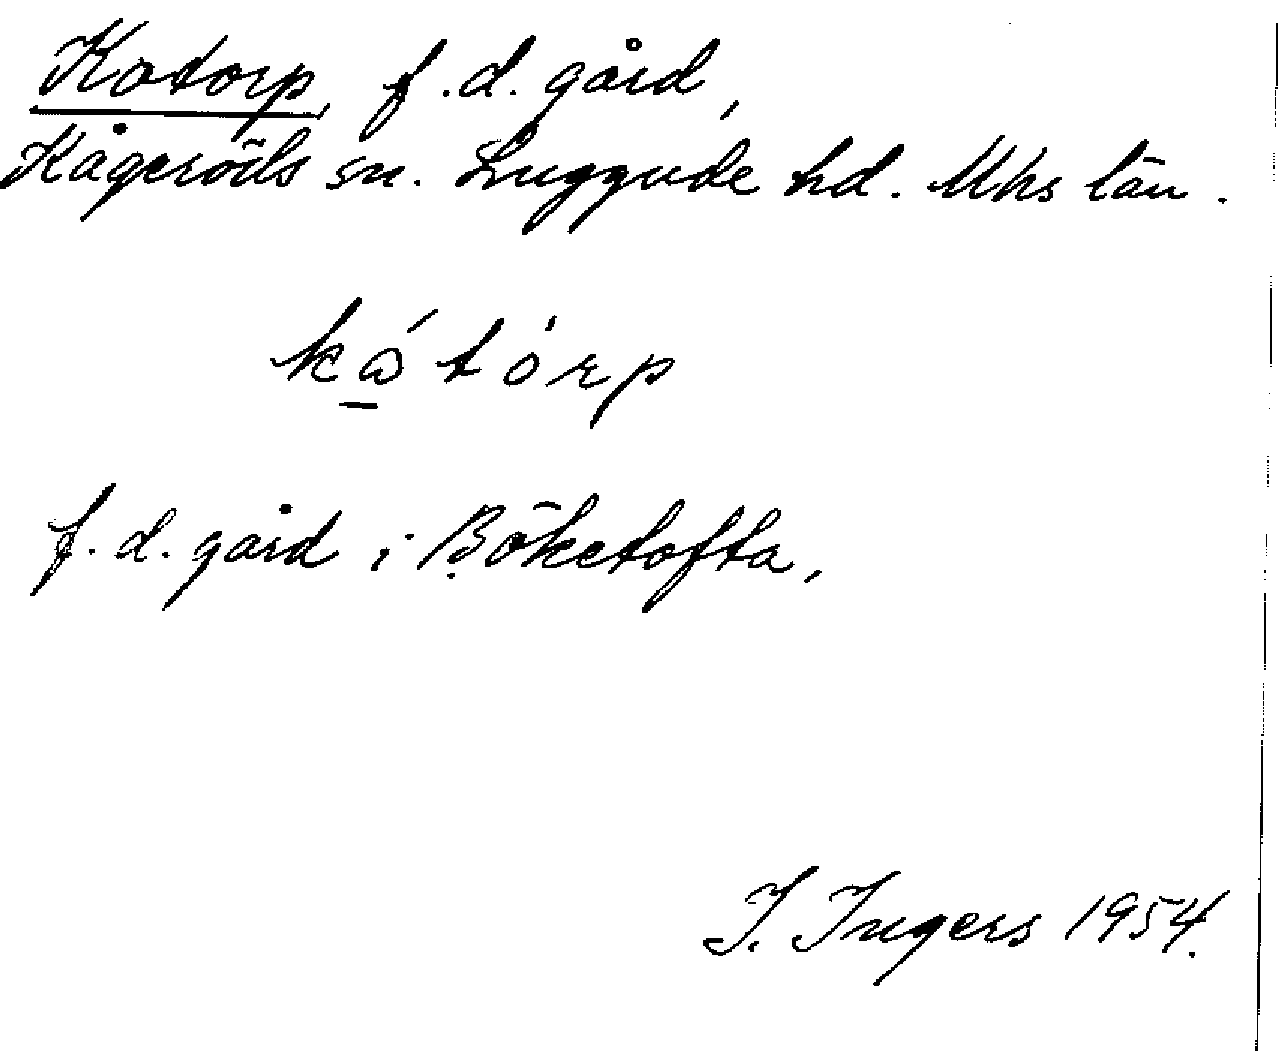 Katorp, f.d. gård,
Kågeröds sn. Luggude hd. Mhs län.
ká̱tórp
f.d. gård i Böketofta,
I. Ingers 1954.